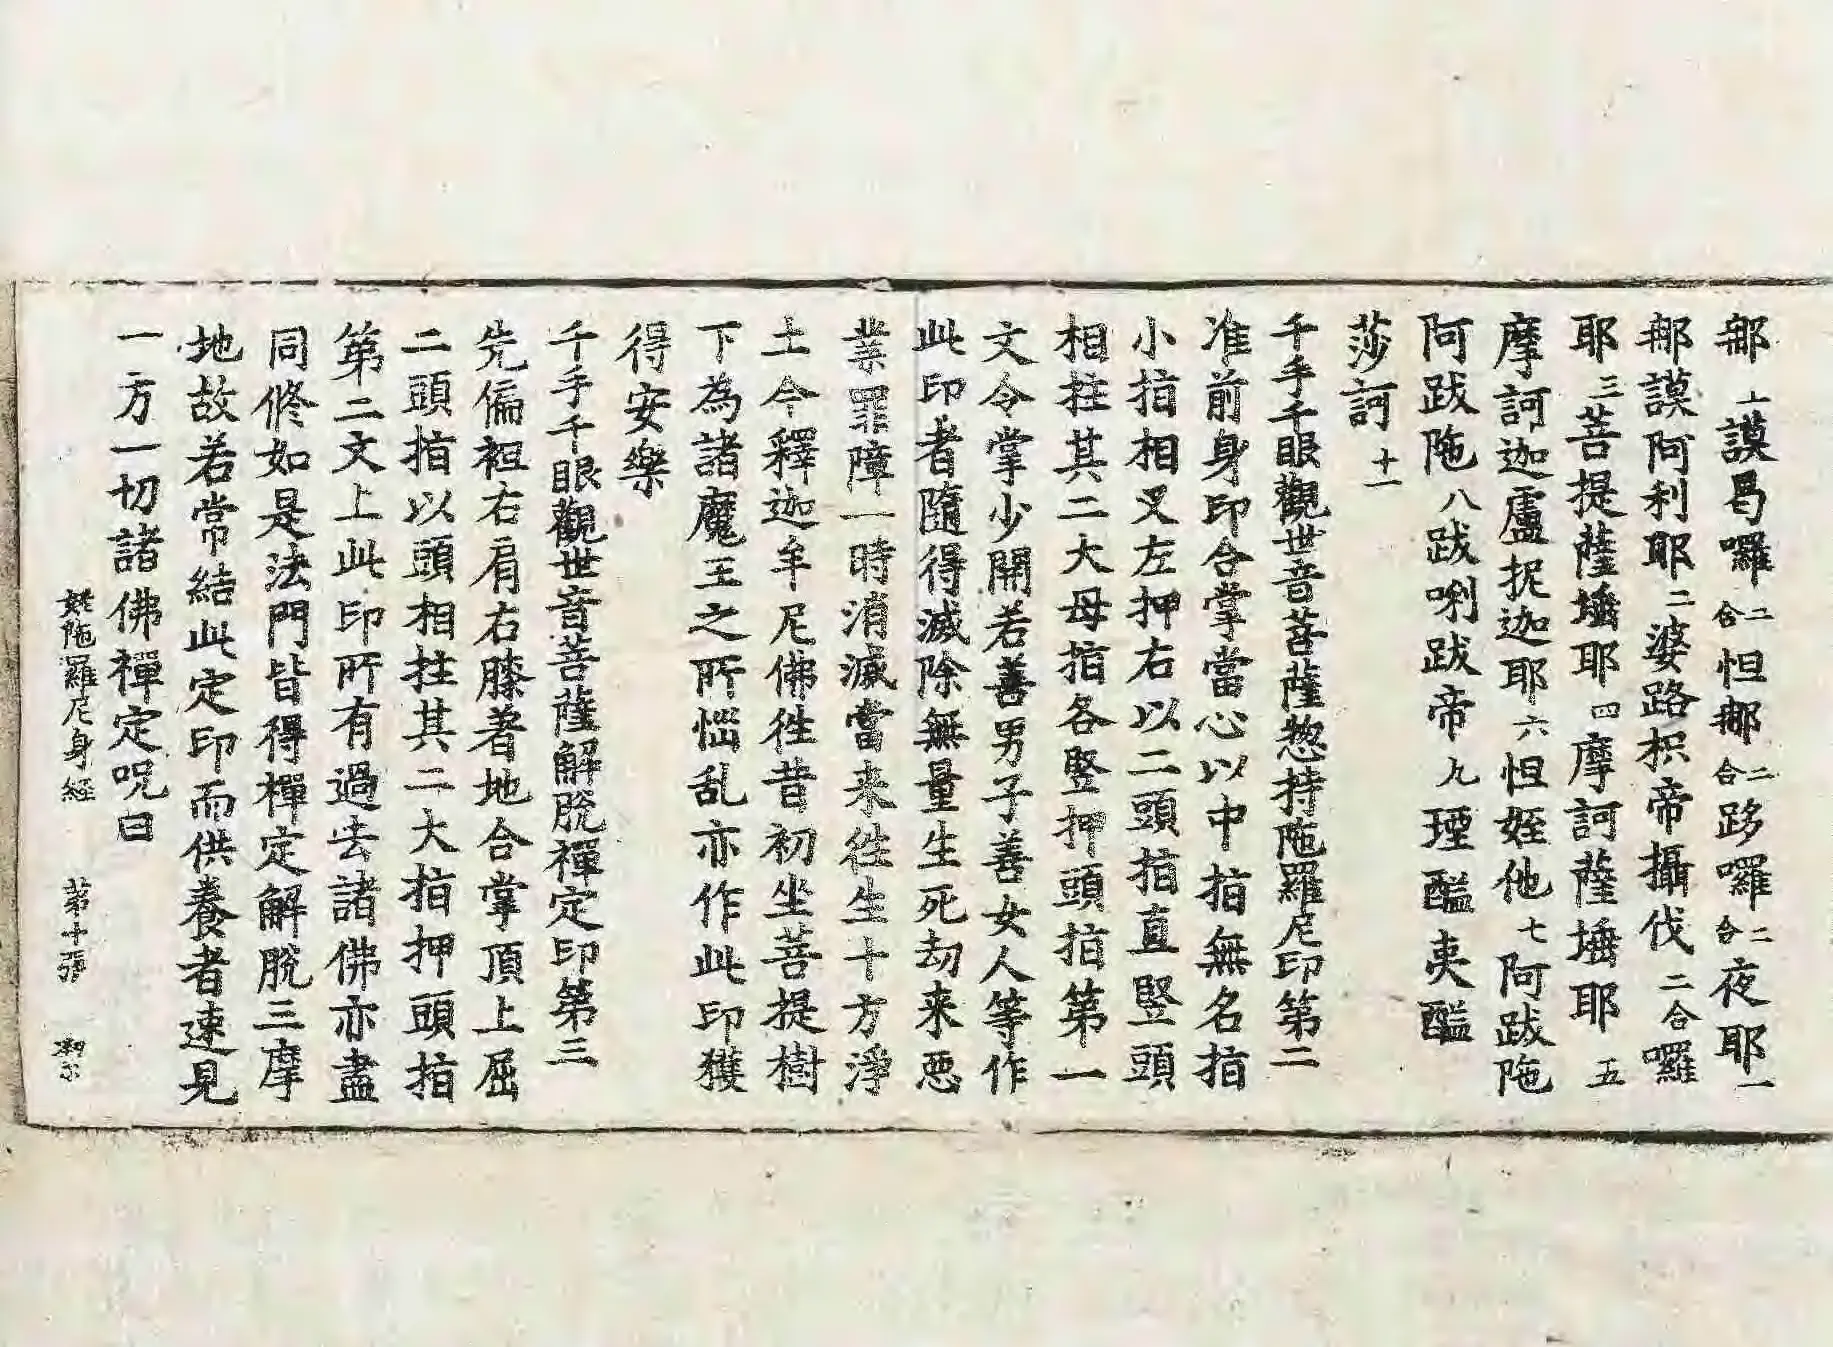 那上謨曷囉二合怛那二合哆囉二合夜耶一
那謨阿利耶二婆路枳帝攝伐二合囉
耶三菩提薩埵耶四摩訶薩埵耶五
摩訶迦盧抳迦耶六怛姪他七阿跋陁
阿跋陁八跋唎跋帝九堙醯夷醯
莎訶十一
千手千眼觀世音菩薩惣持陁羅尼印第二
准前身印合掌當心以中指無名指
小指相叉左押右以二頭指直竪頭
相拄其二大母指各竪押頭指第一
文令掌少開若善男子善女人等作
此印者隨得滅除無量生死劫来惡
業罪障一時消滅當来徃生十方淨
土今釋迦牟尼佛徃昔初坐菩提樹
下為諸魔王之所惱乱亦作此印獲
得安樂
千手千眼觀世音菩薩解脫禪定印第三
先偏袒右肩右膝著地合掌頂上屈
二頭指以頭相拄其二大指押頭指
第二文上此印所有過去諸佛亦盡
同修如是法門皆得禪定解脫三摩
地故若常結此定印而供養者速見
一方一切諸佛禪定呪曰
姥陁羅尼身經 第十張